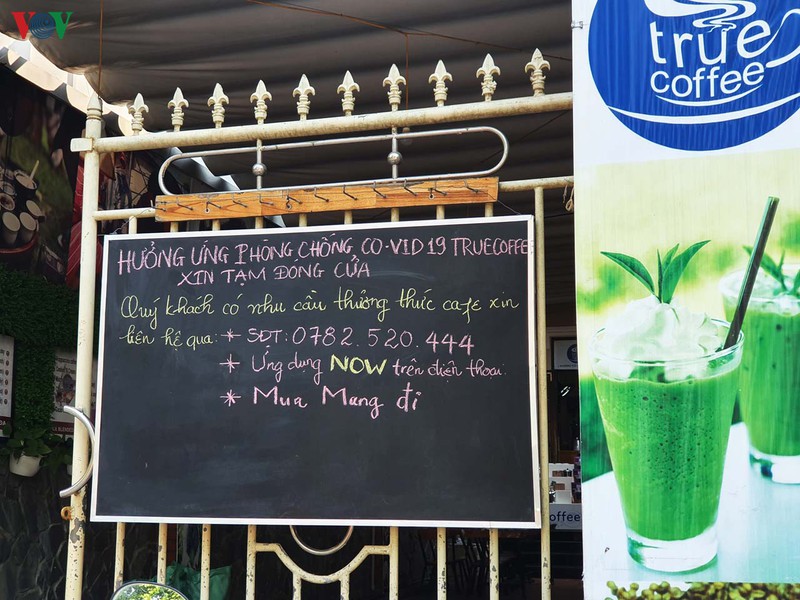 VOV
true
coffee
HƯỞNG ỨNG PHÒNG CHỐNG CO-VID 19 TRUECOFFE
XIN TẠM ĐÓNG CỬA
Quý khách có nhu cầu thưởng thức cafe xin
liên hệ qua: * SĐT: 0782.520.444
* Ứng dụng NOW trên điện thoại.
* Mua Mang đi
offee